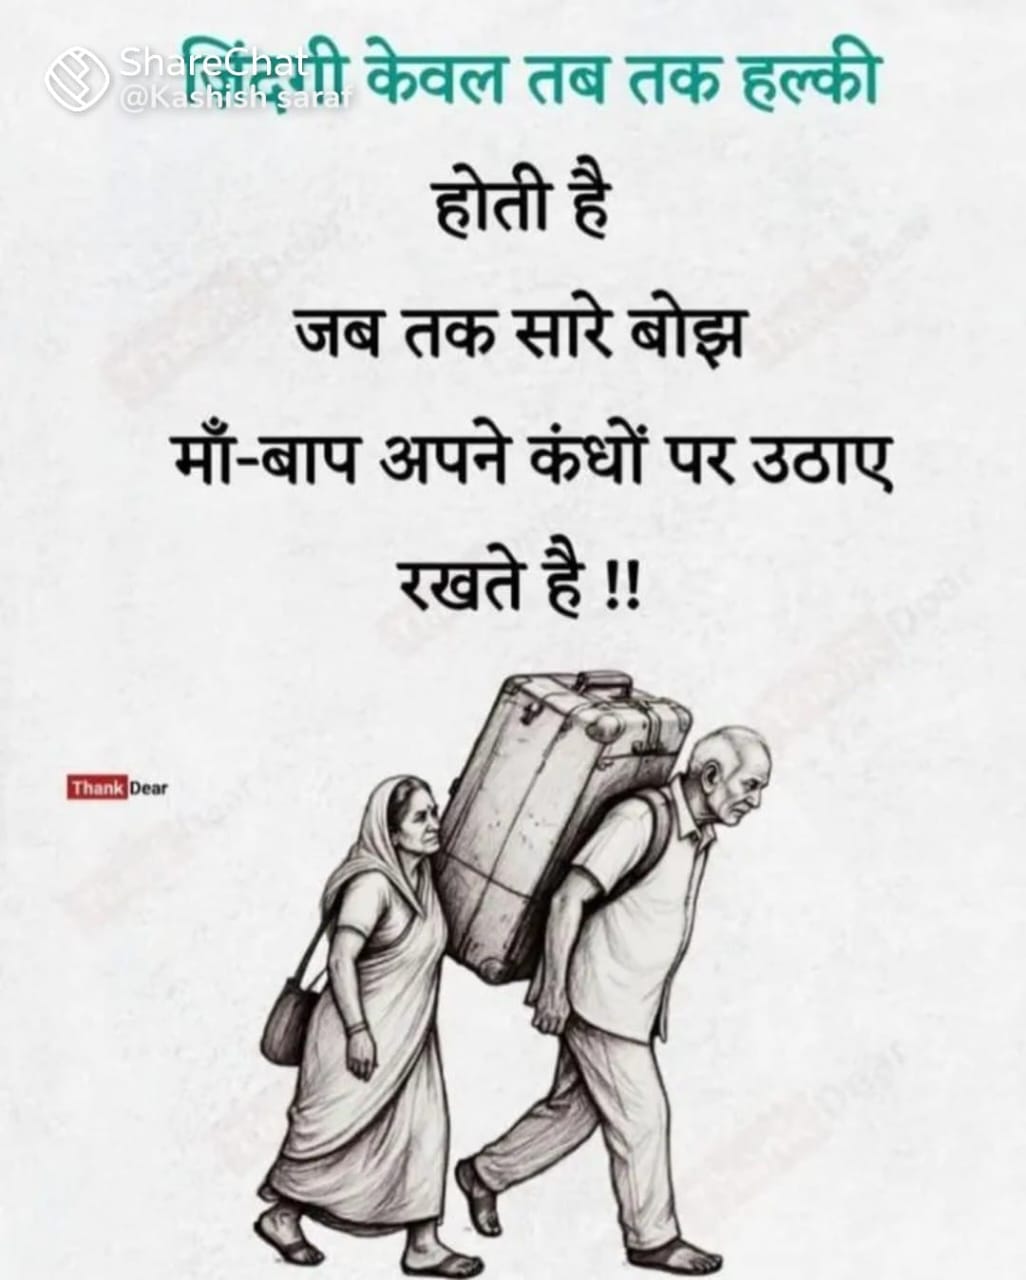 ShareChat
@Kashish saraf
जिंदगी केवल तब तक हल्की
होती है
जब तक सारे बोझ
माँ-बाप अपने कंधों पर उठाए
रखते है !!
Thank Dear